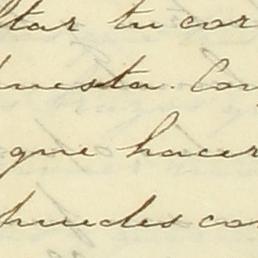 ltar tu cor
uesta. Con
que hacer
puedes co